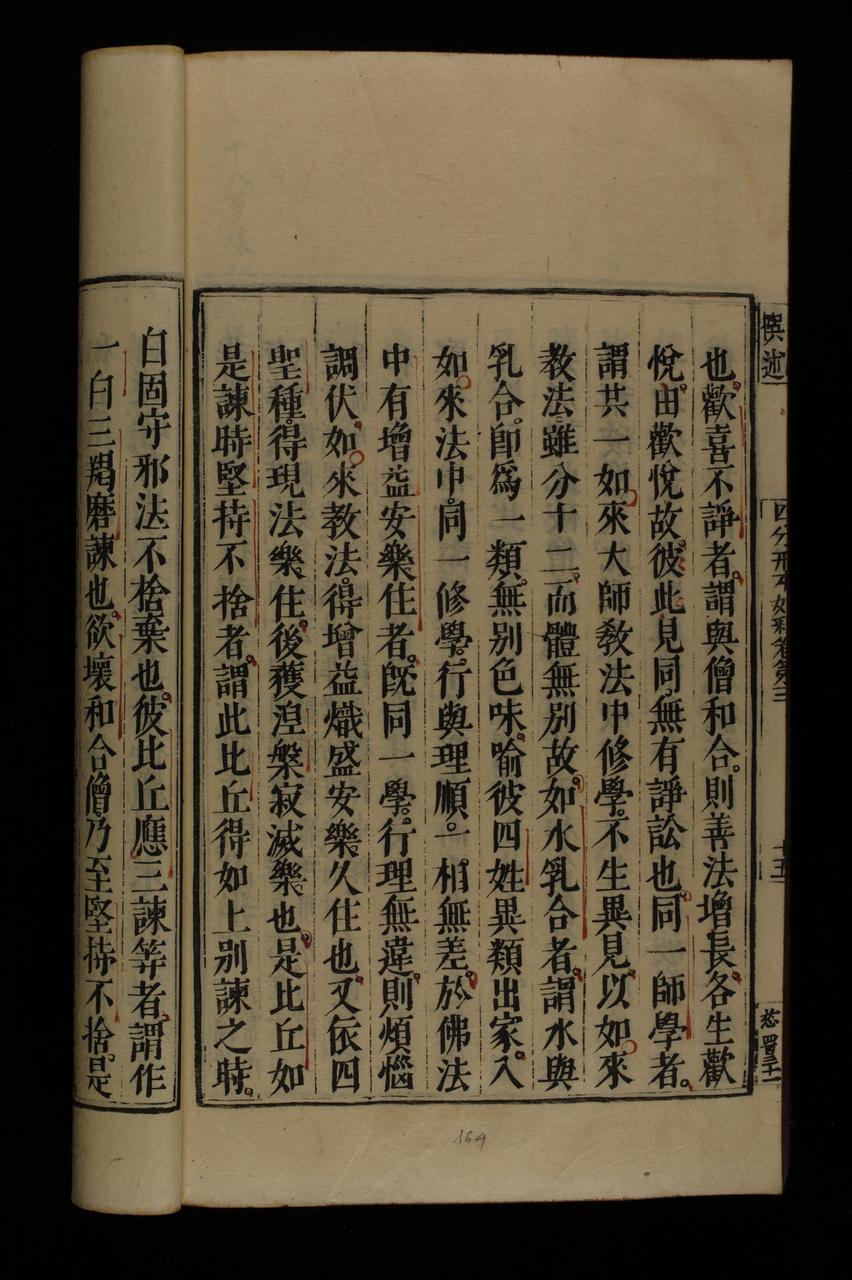 也歡喜不諍者謂與僧和合。則善法增長各生歡
悅由歡悅故彼此見同無有諍訟也同一師學者。
謂其一如來大師教法中修學。不生異見以如來
教法雖分十二而體無別故如水乳合者。謂水與
乳合。即爲一類。無別色味喻彼四姓異類出家入
如來法中同一修學。行與理順。一相無差於佛法
中有增益安樂住者。既同一學。行理無違則煩惱
調伏如來教法。得增益熾盛安樂久住也又依四
聖種得現法樂住後獲涅槃寂滅樂也是比丘如
是諫時堅持不捨者謂此比丘得如上別諫之時。
白固守邪法不捨棄也彼比丘應三諫等者謂作
一白三羯磨諫也欲壞和合僧乃至堅持不捨是
撰述
四分戒本如釋卷第三
十五